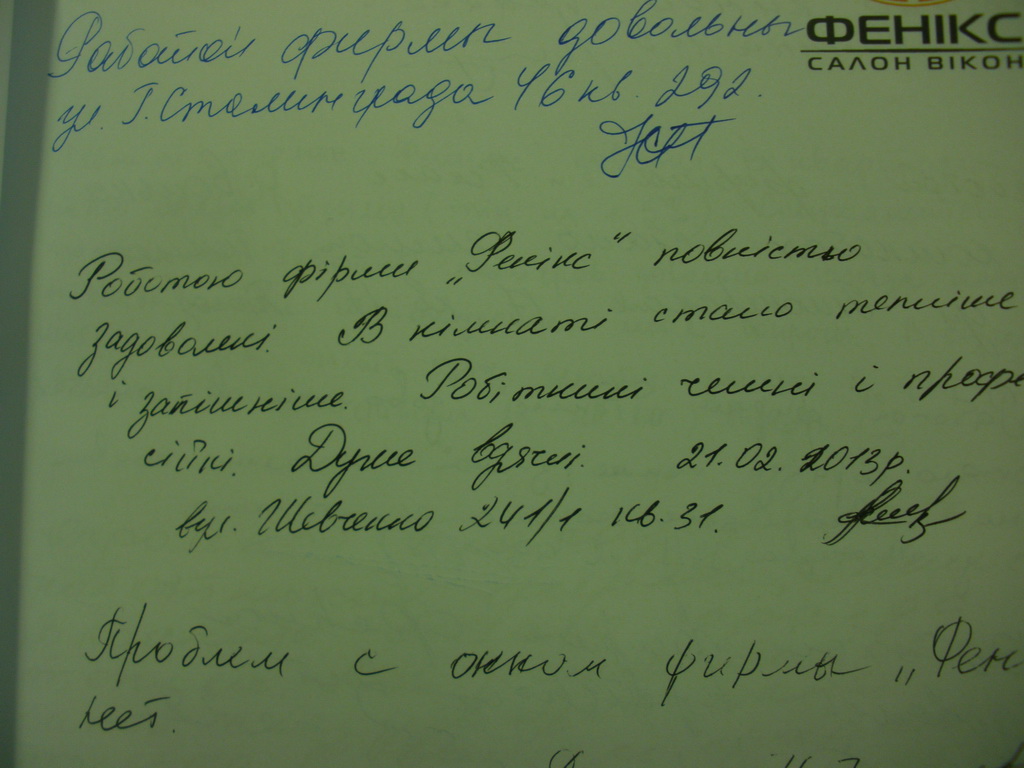 ФЕНІКС
САЛОН ВІКОН
Работой фирмы довольны
ул. Г. Сталинграда 46 кв. 292.
Роботою фірми „Фенікс“ повністю
задоволені. В кімнаті стало тепліше
і затішніше. Робітники чемні і профе
сійні. Дуже вдячні. 21.02.2013р.
вул. Шевченко 241/1 кв. 31.
Проблем с окном фирмы „Фен
нет.